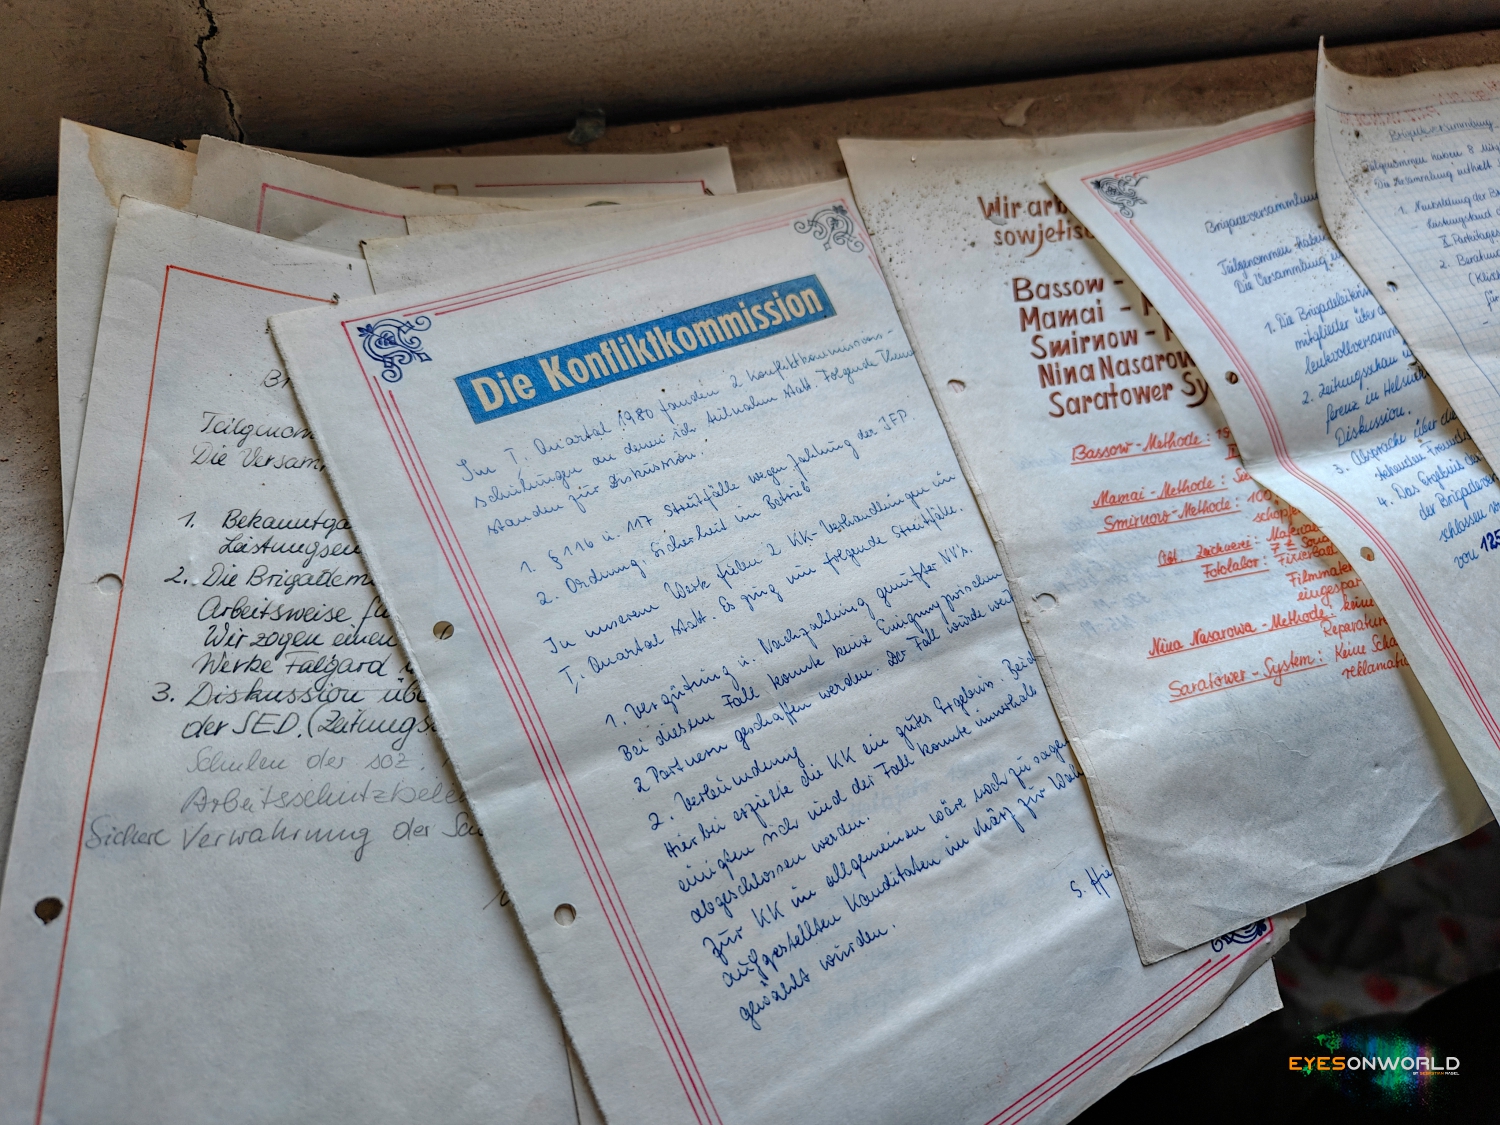 Br
Teilgenom
Die Versam
1. Bekanntga
Leistungsen
2. Die Brigadem
Arbeitsweise fü
Wir zogen einen
Werke Falgard
3. Diskussion übe
der SED. (Zeitungs
Schulen der soz.
Arbeitsschutzbele
Sichere Verwahrung der Sch
Die Konfliktkommission
Im I. Quartal 1980 fanden 2 Konfliktkommissions-
schulungen an denen ich teilnahm statt. Folgende Them
standen zür Diskussion:
1. § 116 u. 117 Streitfälle wegen Zahlung der JEP.
2. Ordnung, Sicherheit im Betrieb
In unserem Werk fielen 2 KK-Verhandlungen im
I. Quartal statt. Es ging um folgende Streitfälle.
1. Vergütung u. Nachzahlung genützter NV's.
Bei diesem Fall konnte keine Einigung zwischen
2 Partnern geschaffen werden. Der Fall würde wei
2. Verleumdung
Hierbei erzielte die KK ein gutes Ergebnis. Beide
einigten sich und der Fall konnte innerhalb
abgeschlossen werden.
Zür KK im allgemeinen wäre noch zu sagen
aufgestellten Kanditaten im März zür Wahl
gewählt würden.
S. Hie
Wir arb
sowjetisc
Bassow -
Mamai -
Smirnow -
Nina Nasarow
Saratower Sy
Bassow-Methode: 15
Mamai-Methode: Se
Smirnow-Methode: 100
schöpfer
Abt. Zeichnerei: Material
Fotolabor: Fixierbad
Filmmater
eingespar
Nina Nasarowa-Methode: keine
Reparatur
Saratower-System: Keine Scha
reklamatio
Brigadeversammlung
Teilgenommen haben
Die Versammlung
1. Die Brigadeleiterin
mitglieder über d
leukvollversamm
2. Zeitungsschau
ferenz in Helsin
Diskussion.
3. Absprache über die
stehenden Freunds
4. Das Ergebnis der
der Brigadever
schlossen
von 125
Brigadeversammlung
Teilgenommen haben 8 Mitg
Die Versammlung enthielt
1. Auswertung der Br
Leistungs
X. Parteitages
2. Beratung
für
EYESONWORLD
BY SEBASTIAN NAGEL